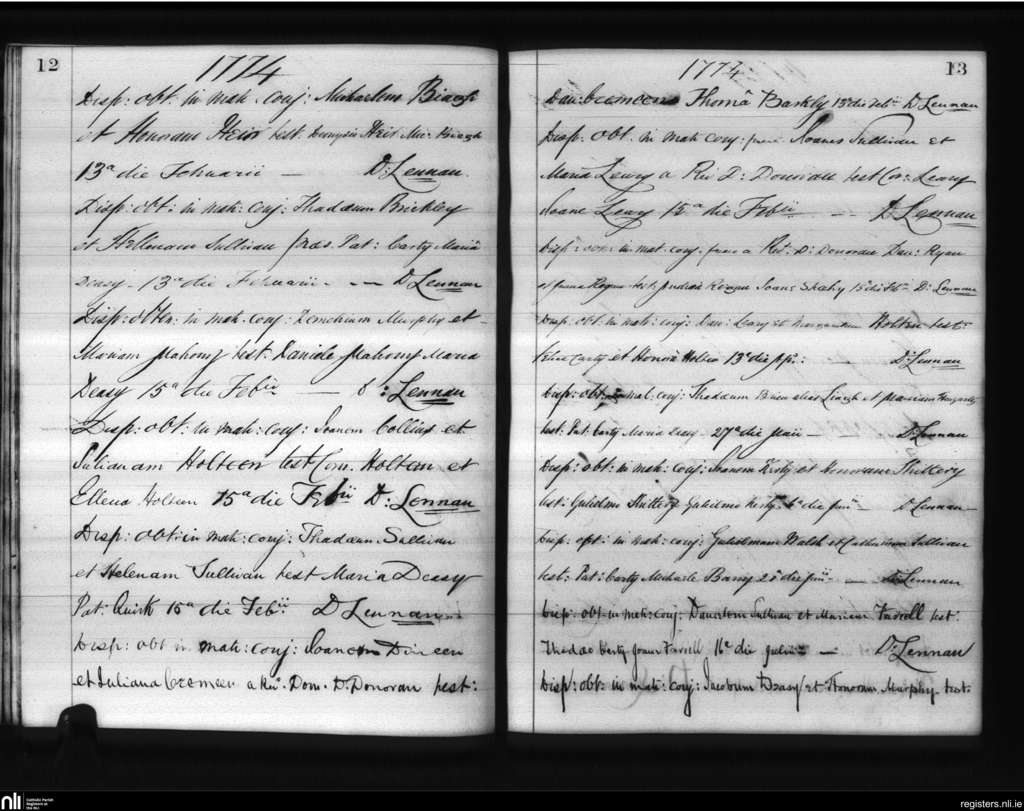 12
1774
Disp: obt: in mat: conj: Michaelem
et Honoram test
13a die Februarii — D: Lennan
Disp: obt: in mat: conj: Thadaeum Brickley
et Helenam Sullivan Pat: Carty Maria
Deasy - 13a die Februarii - - D Lennan
Disp: obten: in mat: conj: Demetrium Murphy et
Mariam Mahony test: Daniele Mahony Maria
Deasy 15a die Febii — D: Lennan
Disp: obt: in mat: conj: Joanem Collins et
Julianam Holteen test Corn. Holteen et
Ellena Holteen 15a die Febii D: Lennan
Disp: obt: in mat: conj: Thadaeum Sullivan
et Helenam Sullivan test Maria Deasy
Pat: Quirk 15a die Febii D Lennan
Disp: obt in mat: conj: Joanem Dineen
et Juliana Cremeen a Rev: Dom: D: Donovan test:
13
1774
Dan: Cremeen Thomâ Barkly 15 die Febii D Lennan
Disp: obt. in mat conj: Joanem Sullivan et
Maria Leary a Rev D: Donovan test Cor: Leary
Joane Leary 15a die Febii - - D Lennan
Disp: obt: in mat: conj: a Rev: D: Donovan Dan: Ryan
et test Joane Sheehy 15 die Feb D: Lennan
Disp: obt. in mat: conj: Dan: Leary et Margaretam Holteen test:
Carty et Honora Holteen 13o die — D: Lennan
Disp: obt: in mat. conj: Thadaeum Brien alias et Mariam
test: Pat: Carty Maria Deasy - 27a die Maii — D: Lennan
Disp: obt: in mat: conj: Joanem Kirby et Honoram
test: Gulielmo Gulielmo Kirby die Junii — D Lennan
Disp: opt: in mat: conj: Gulielmum Walsh et Catherinam Sullivan
test: Pat: Carty Michaele Barry die Junii — D: Lennan
Disp: obt. in mat: conj: Danielem Sullivan et Mariam Farrell test:
Thadeo Carty Joane Farrell 16a die Julii — D: Lennan
Disp: obt: in mat: conj: Jacobum Deasy et Honoram Murphy test:
nli
Catholic Parish
Registers at
the NLI
registers.nli.ie